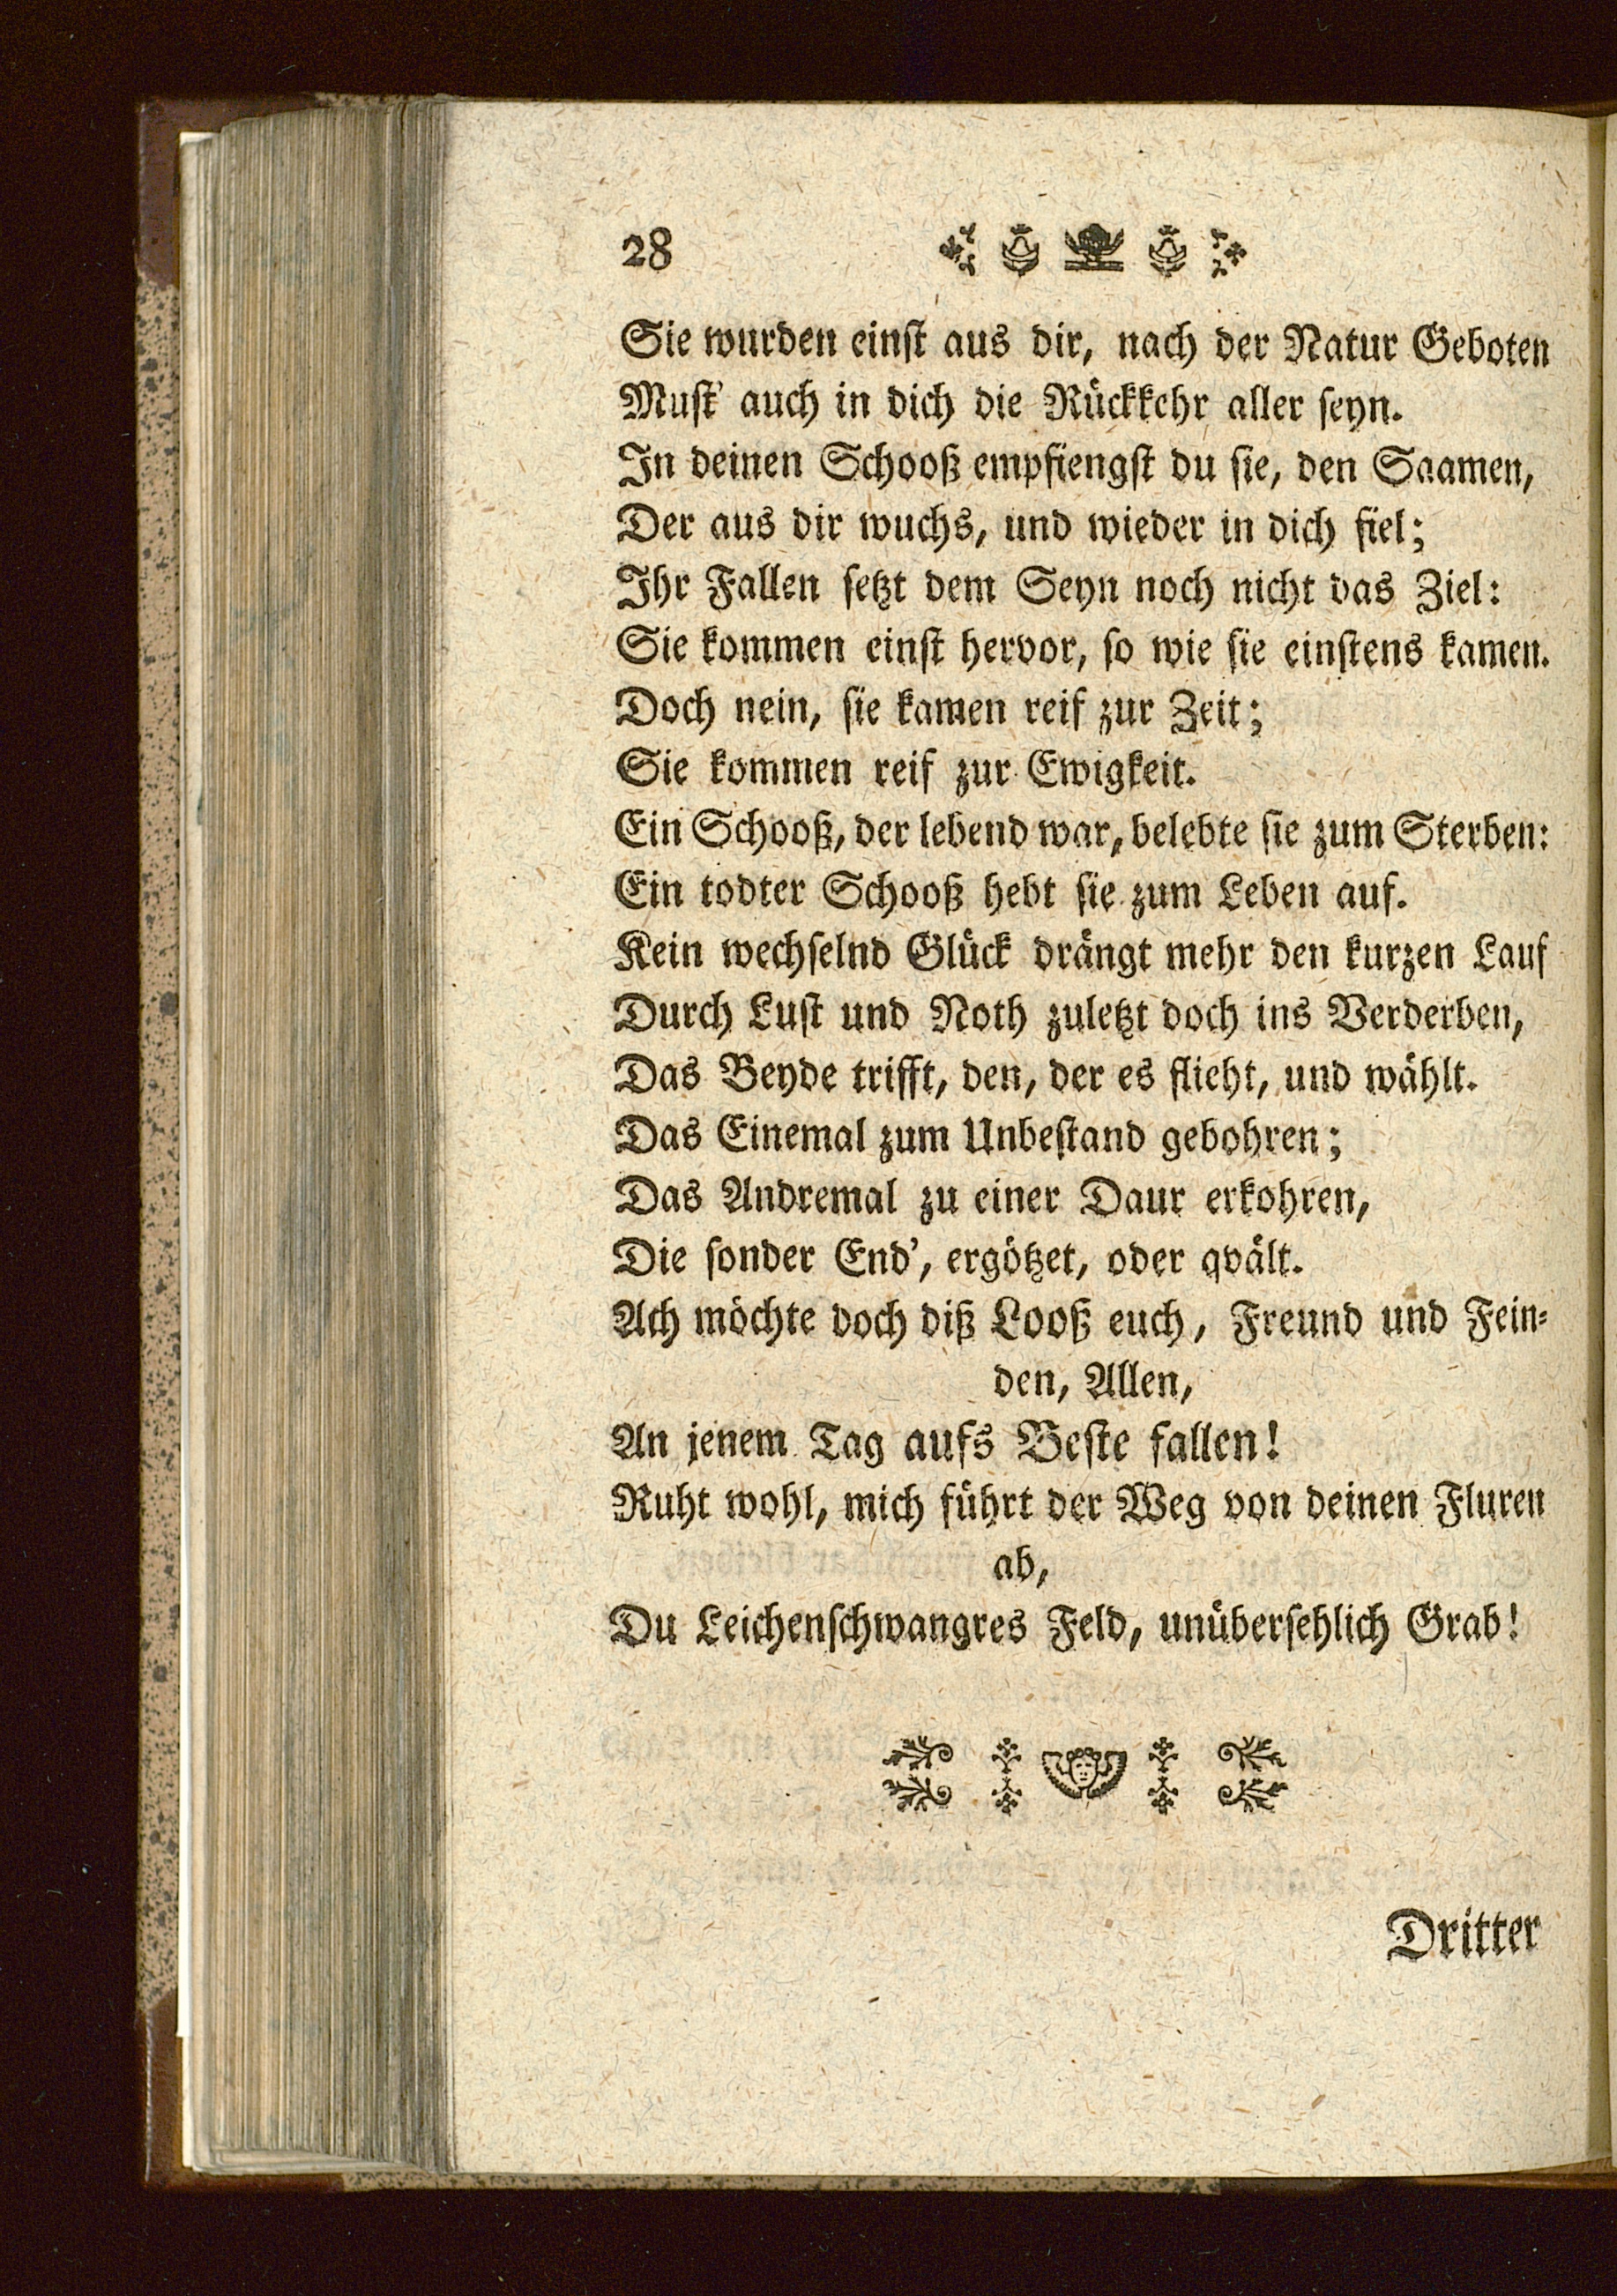 28
Sie wurden einst aus dir, nach der Natur Geboten
Must' auch in dich die Rückkehr aller seyn.
In deinen Schooß empfiengst du sie, den Saamen,
Der aus dir wuchs, und wieder in dich fiel;
Ihr Fallen setzt dem Seyn noch nicht das Ziel:
Sie kommen einst hervor, so wie sie einstens kamen.
Doch nein, sie kamen reif zur Zeit;
Sie kommen reif zur Ewigkeit.
Ein Schooß, der lebend war, belebte sie zum Sterben:
Ein todter Schooß hebt sie zum Leben auf.
Kein wechselnd Glück drängt mehr den kurzen Lauf
Durch Lust und Noth zuletzt doch ins Verderben,
Das Beyde trifft, den, der es flieht, und wählt.
Das Einemal zum Unbestand gebohren;
Das Andremal zu einer Daur erkohren,
Die sonder End', ergötzet, oder qvält.
Ach möchte doch diß Looß euch, Freund und Fein-
den, Allen,
An jenem Tag aufs Beste fallen!
Ruht wohl, mich führt der Weg von deinen Fluren
ab,
Du Leichenschwangres Feld, unübersehlich Grab!
Dritter